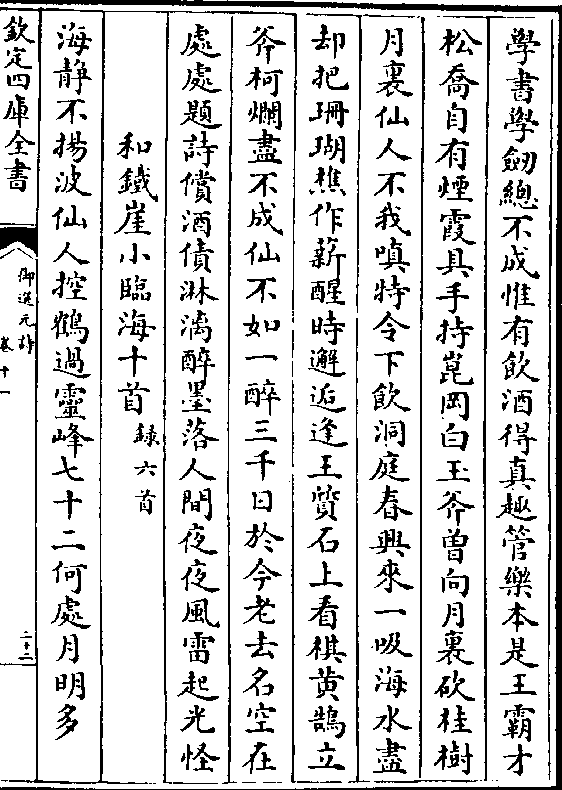 學書學劒總不成惟有飲酒得真趣管樂本是王霸才
松喬自有煙霞具手持崑岡白玉斧曽向月裏砍桂樹
月裏仙人不我嗔特令下飲洞庭春興來一吸海水盡
却把珊瑚樵作薪醒時邂逅逢王質石上看棋黄鵠立
斧柯爛盡不成仙不如一醉三千日於今老去名空在
處處題詩償酒債淋漓醉墨落人間夜夜風雷起光怪
和鐵崖小臨海十首錄六首
海静不揚波仙人控鶴過靈峰七十二何處月明多
欽定四庫全書
御選元詩
卷十一
二十二